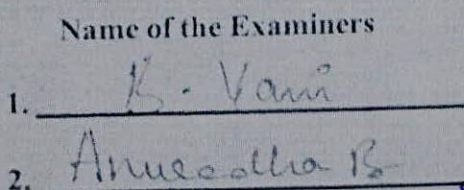 Name of the Examiners
1. B. Vani
2. Anuradha B